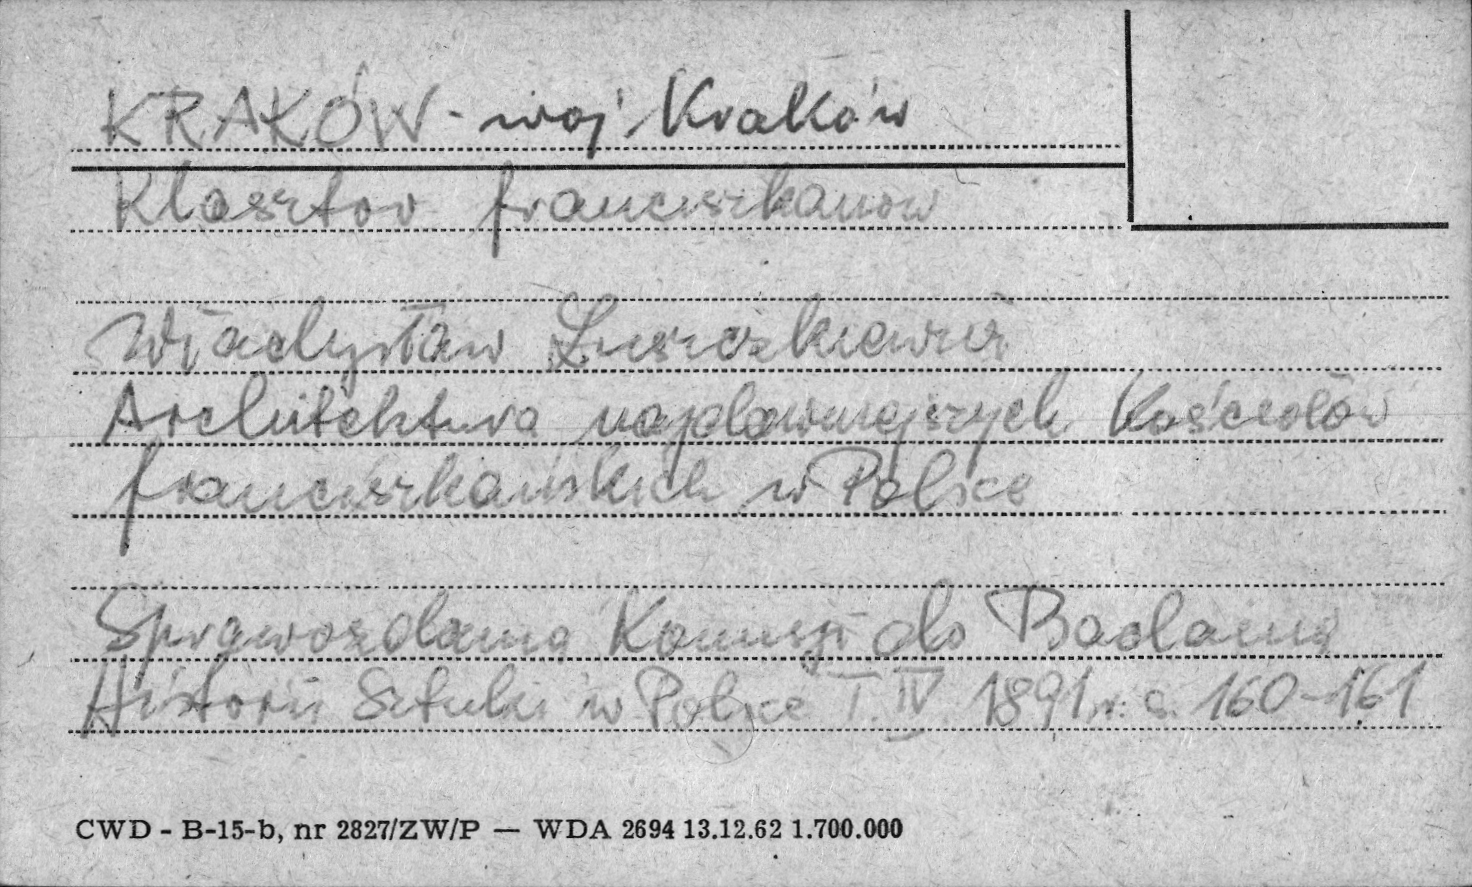 KRAKÓW - woj Kraków
Klasztor franciszkanów
Władysław Łuszczkiewicz
Architektura najdawniejszych Kościołów
franciszkańskich w Polsce
Sprawozdania Komisji do Badania
Historii Sztuki w Polsce T. IV. 1891 r. s. 160-161
CWD - B-15-b, nr 2827/ZW/P — WDA 2694 13.12.62 1.700.000